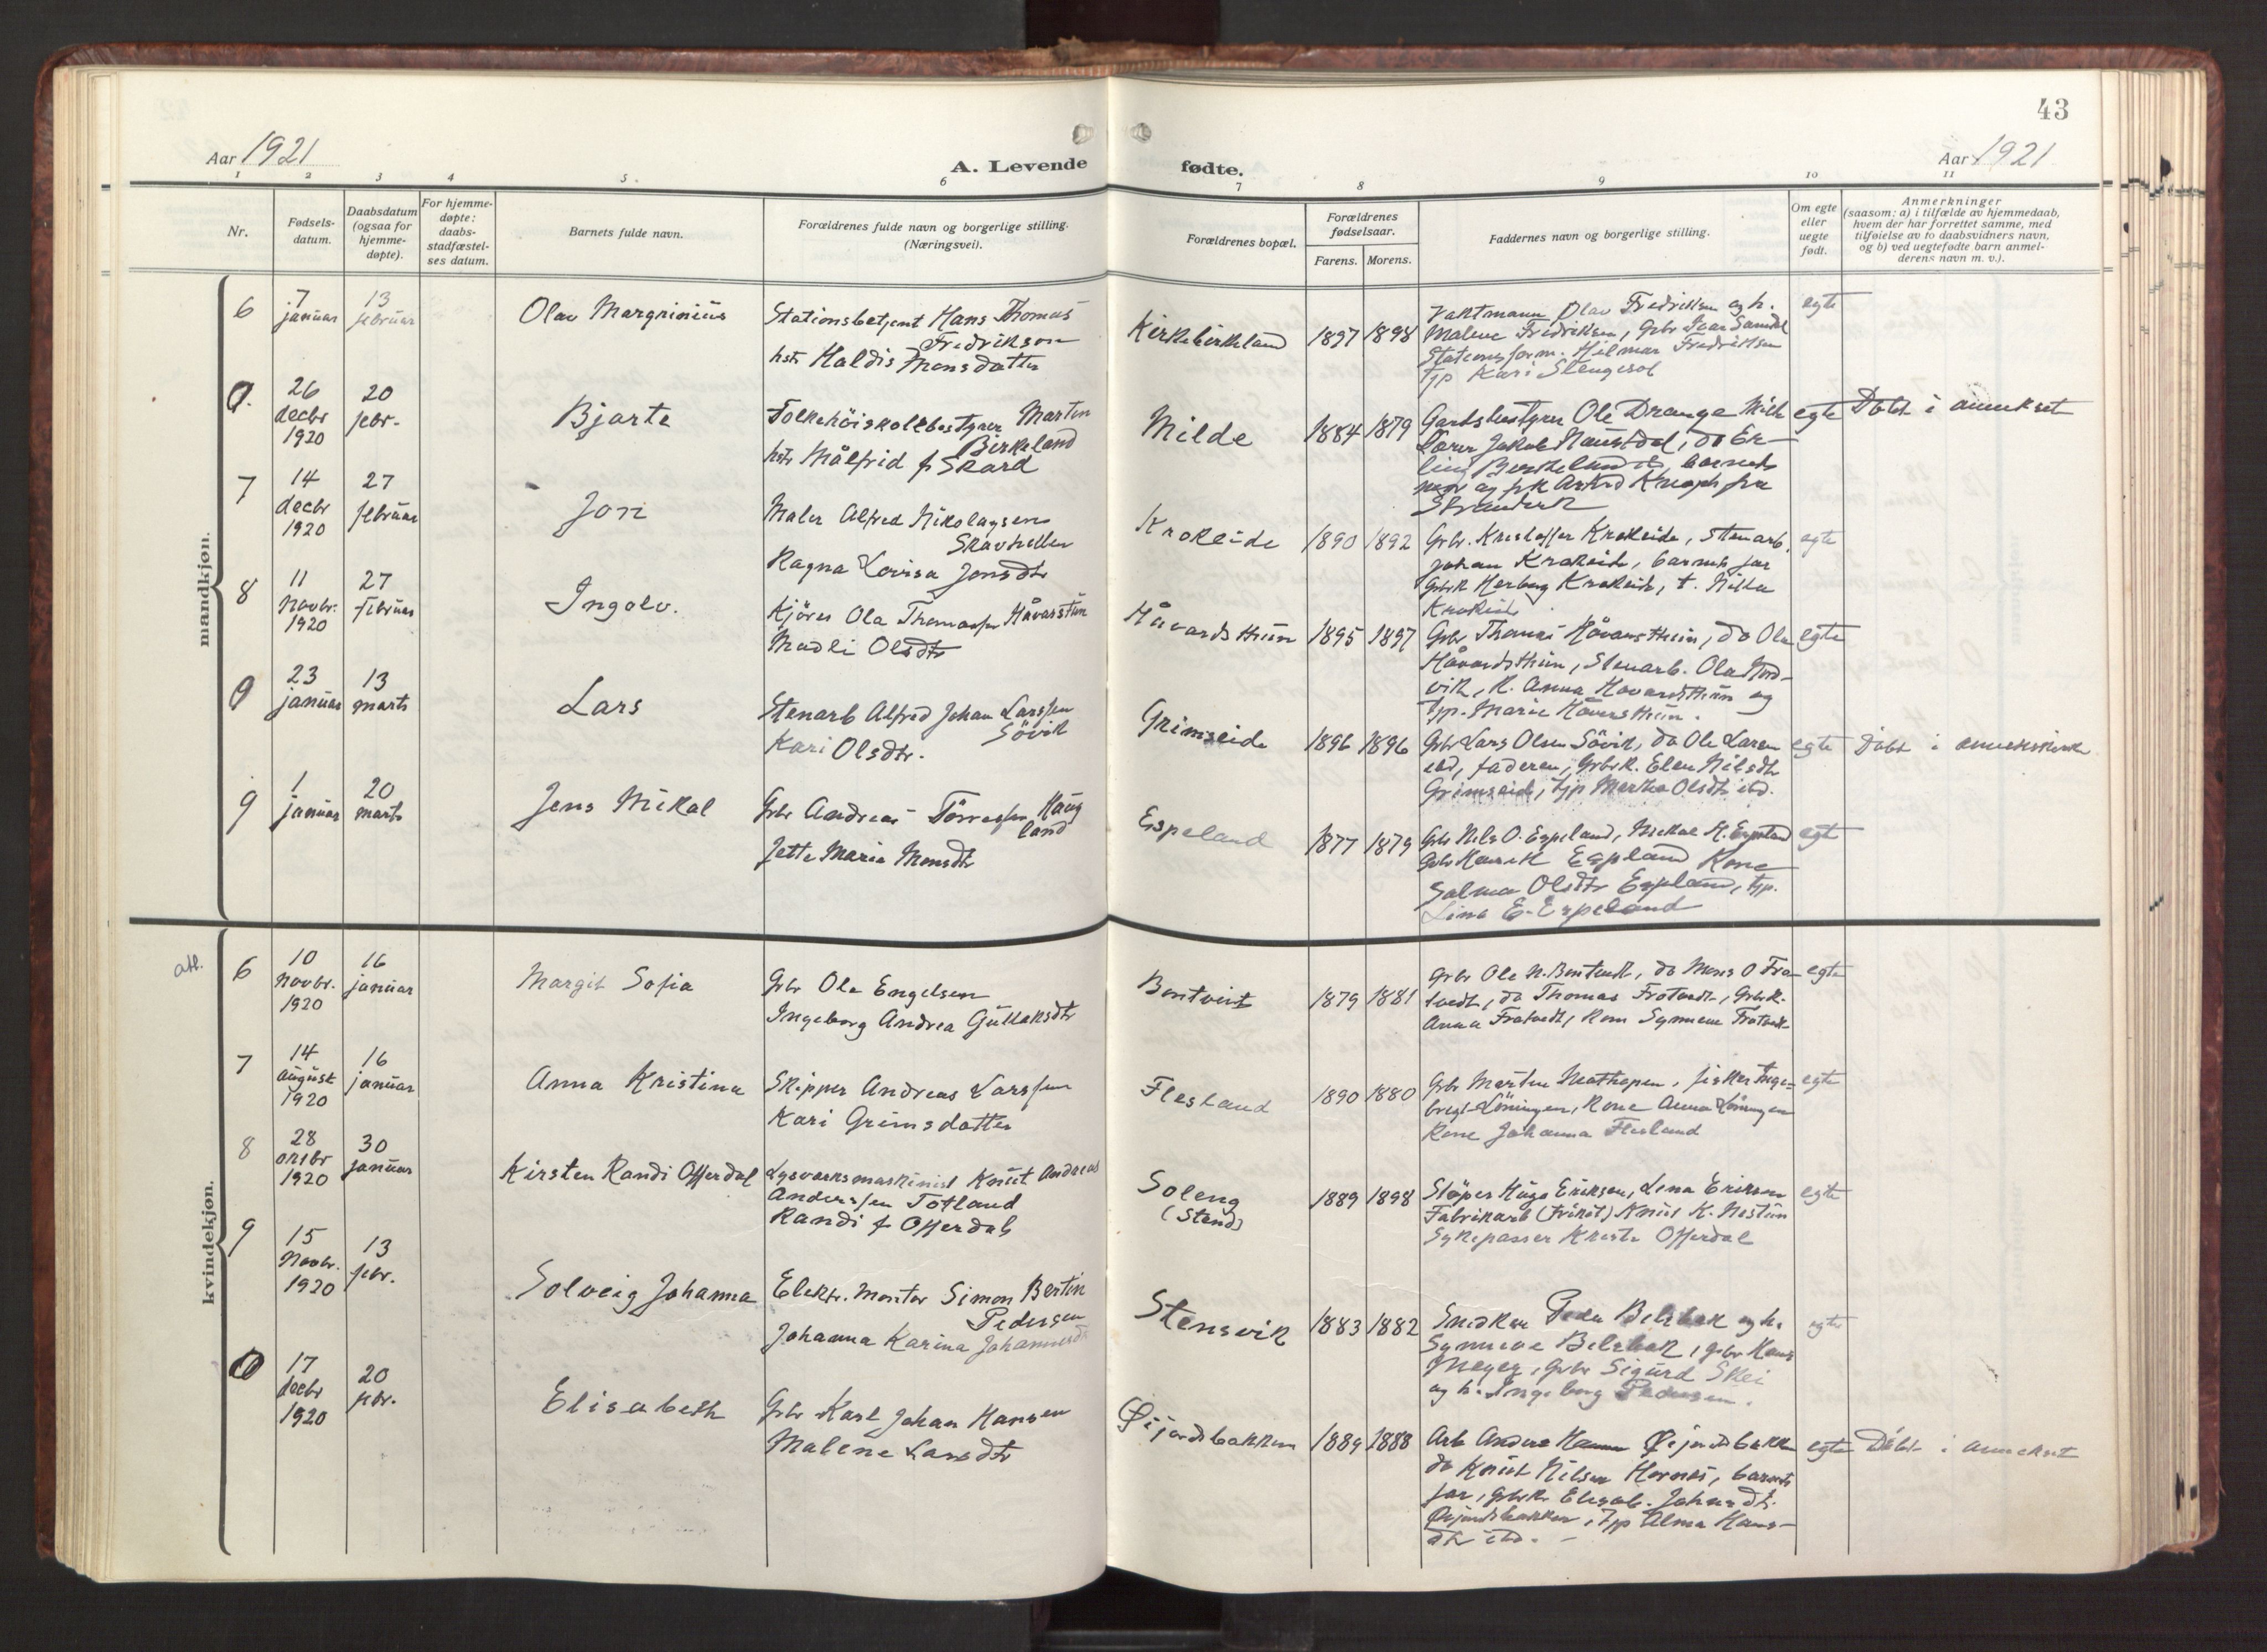 43
Aar 1921
A. Levende fødte.
Aar 1921
1 2 3 4 5 6 7 8 9 10 11
Nr.
Fødsels-
datum.
Daabsdatum
(ogsaa for
hjemme-
døpte).
For hjemme-
døpte:
daabs-
stadfæstel-
ses datum.
Barnets fulde navn.
Forældrenes fulde navn og borgerlige stilling.
(Næringsvei).
Forældrenes bopæl.
Forældrenes
fødselsaar.
Farens. Morens.
Faddernes navn og borgerlige stilling.
Om egte
eller
uegte
født.
Anmerkninger
(saasom: a) i tilfælde av hjemmedaab,
hvem der har forrettet samme, med
tilføielse av to daabsvidners navn,
og b) ved uegtefødte barn anmel-
derens navn m. v.).
mandkjøn.
6
7
januar
13
februar
Olav Margninius
Stationsbetjent Hans Thomas
Fredrikson
hstr Haldis Monsdatter
Kirkebirkeland
1897 1898
Vaktmann Olav Fredriksen og h.
Malene Fredriksen, Gbr Ivar Samdal
Stationsform. Hilmar Fredriksen
Tjp Kari Stengesol
egte
0.
26
decbr
1920
20
febr.
Bjarte
Folkehöiskolebestyrer Martin
Birkeland
hstr Målfrid f Skard
Milde
1884 1879
Gardsbestyrer Ole Drange Milde
Lærer Jakob Naustdal, do Er-
ling Birkeland, barnets
mor og frk Astrid Knoph fra
egte
Döbt i annekset
7
14
decbr
1920
27
februar
Jon
Maler Alfred Nikolaysen
Skavhellen
Ragna Lovisa Jonsdtr
Krokeide
1890 1892
Gbr. Kristoffer Krokeide, stenarb.
Johan Krokeide, barnets far
Gbrk Herborg Krokeide, t. Nilla
Krokeide
egte
8
11
Novbr.
1920
27
Februar
Ingolv.
Kjörer Ola Thomassen Håvarstun
Madli Olsdtr
Håvardsthun
1895 1897
Gbr Thomas Håvarsthun, do Ola
Håvardsthun, Stenarb. Ola Nord-
vik, K. Anna Havardsthun og
Tjp. Marie Håversthun.
egte
0
23
januar
13
marts
Lars
Stenarb Alfred Johan Larssen
Sövik
Kari Olsdtr.
Grimseide
1896 1896
Gbr Lars Olsen Sövik, do Ole Larsen
ibd, faderen, Gbrk. Elen Nilsdtr
Grimseid, tjp Marta Olsdtr ibd.
egte
Döbt i annekskirk
9
1
januar
20
marts
Jens Mikal
Gbr Andreas Törressen Haug
land
Jette Marie Monsdtr
Espeland
1877 1879
Gbr Nils O. Espeland, Mickal M. Espeland
Gbr Henrik Espeland Kone
Salma Olsdtr Espeland, tjp.
Lina E. Espeland
egte
kvindekjøn.
att.
6
10
Novbr.
1920
16
januar
Margit Sofia
Gbr Ole Engelsen
Ingeborg Andrea Gullaksdtr
Bontveit
1879 1881
Gbr Ole N. Bontvedt, do Mons O Fra-
tvedt, do Thomas Frotvedt, Gbrk.
Anna Frotvedt, Kone Synneve Frotvedt
egte
7
14
august
1920
16
januar
Anna Kristina
Skipper Andreas Larssen
Kari Grimsdatter
Flesland
1890 1880
Gbr Martin Mathopen, fisker Inge-
brigt Löningen, Kone Anna Löningen
Kone Johanna Flesland
egte
8
28
oktbr
1920
30
januar
Kirsten Randi Offerdal
Lysverksmaskinist Knut Andreas
Anderssen Totland
Randi f Offerdal
Soleng
(Stend)
1889 1898
Støper Hugo Eriksen, Lena Eriksen
Fabrikarb (Frikst) Knut K. Nestun
Sykepasser Kirsti Offerdal
egte
9
15
Novbr.
1920
13
febr.
Solveig Johanna
Elektr. Montør Simon Bertin
Pedersen
Johanna Karina Johannesdtr
Stensvik
1883 1882
Snedker Peder Belsbak og h.
Synneve Belsbak, Gbr Hans
Meyer, Gbr Sigurd Skei
og h. Ingeborg Pedersen.
egte
0
17
decbr
1920
20
febr.
Elisabeth
Gbr Karl Johan Hansen
Malene Larsdtr
Øijordsbakken
1889 1888
Arb Anders Hansen Øijordsbakken
do Knut Nilsen Hornæs, barnets
far, gbrk Elisab. Johansdtr.
Øijordsbakken, Tjp Alma Hans-
dtr ibd. –
egte
Döbt i annekset